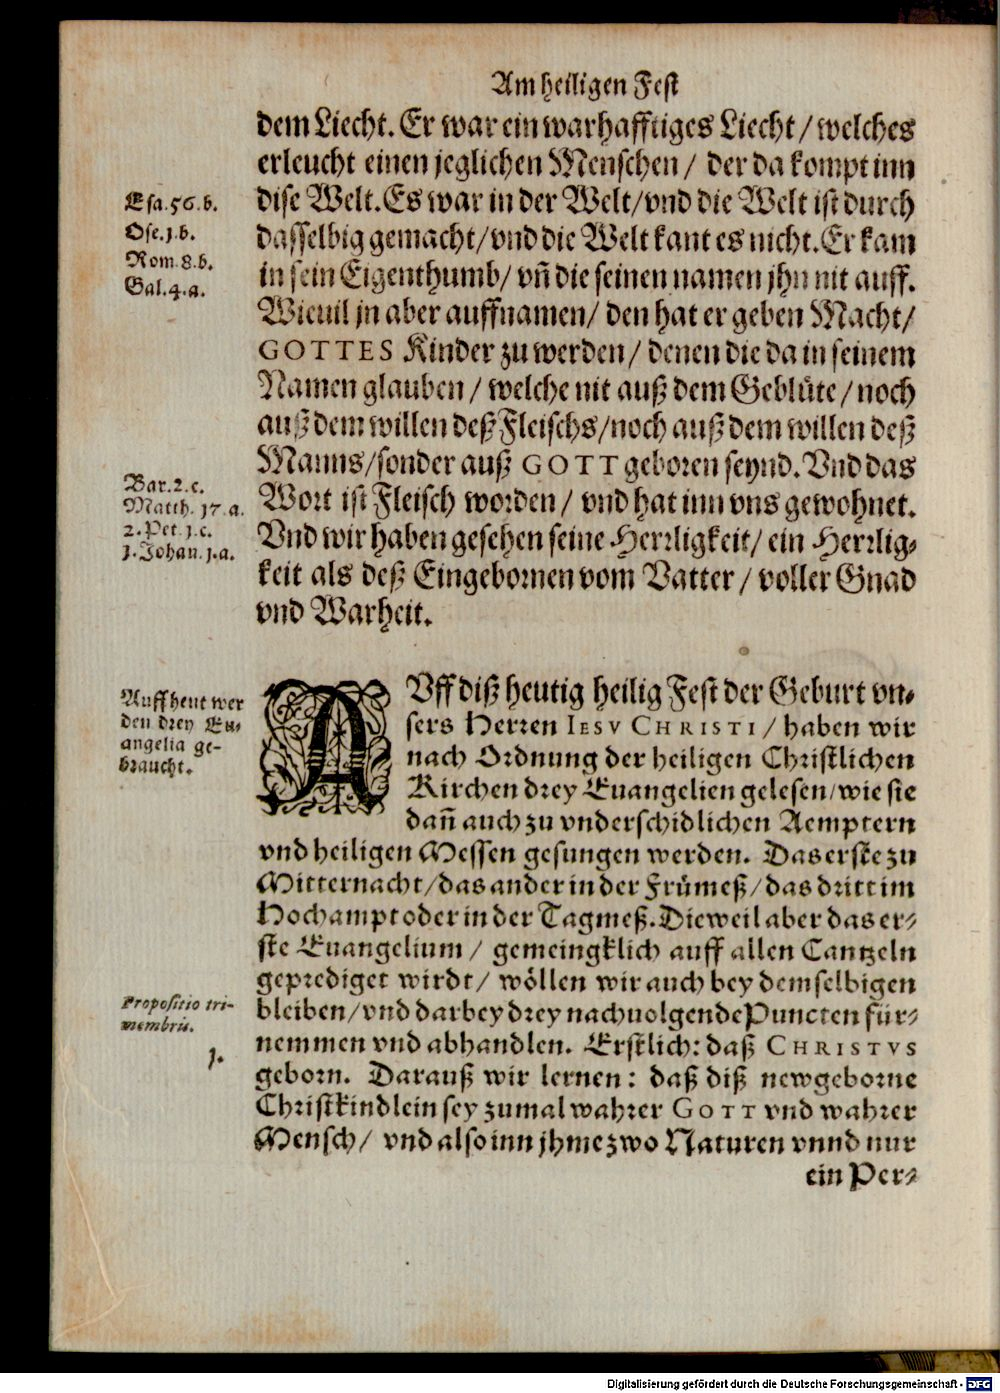 Am heiligen Fest
dem Liecht. Er war ein warhafftiges Liecht / welches
erleucht einen jeglichen Menschen / der da kompt inn
dise Welt. Es war in der Welt / vnd die Welt ist durch
dasselbig gemacht / vnd die Welt kant es nicht. Er kam
in sein Eigenthumb / vñ die seinen namen jhn nit auff.
Wieuil jn aber auffnamen / den hat er geben Macht /
GOTTES Kinder zu werden / denen die da in seinem
Namen glauben / welche nit auß dem Geblüte / noch
auß dem willen deß Fleischs / noch auß dem willen deß
Manns / sonder auß GOTT geboren seynd. Vnd das
Wort ist Fleisch worden / vnd hat inn vns gewohnet.
Vnd wir haben gesehen seine Herrligkeit / ein Herrlig-
keit als deß Eingebornen vom Vatter / voller Gnad
vnd Warheit.
Esa. 56. b.
Ose. j. b.
Rom. 8. b.
Gal. 4. a.
Bar. 2. c.
Matth. 17. a.
2. Pet. j. c.
j. Johan. j. a.
AVff diß heutig heilig Fest der Geburt vn-
sers Herren IESV CHRISTI / haben wir
nach Ordnung der heiligen Christlichen
Kirchen drey Euangelien gelesen / wie sie
dañ auch zu vnderschidlichen Aemptern
vnd heiligen Messen gesungen werden. Das erste zu
Mitternacht / das ander in der Frümeß / das dritt im
Hochampt oder in der Tagmeß. Dieweil aber das er-
ste Euangelium / gemeingklich auff allen Cantzeln
geprediget wirdt / wöllen wir auch bey demselbigen
bleiben / vnd darbey drey nachuolgende Puncten für-
nemmen vnd abhandlen. Erstlich: daß CHRISTVS
geborn. Darauß wir lernen: daß diß newgeborne
Christkindlein sey zumal wahrer GOTT vnd wahrer
Mensch / vnd also inn jhme zwo Naturen vnnd nur
ein Per-
Auff heut wer
den drey Eu-
angelia ge-
braucht.
Propositio tri-
membris.
j.
Digitalisierung gefördert durch die Deutsche Forschungsgemeinschaft - DFG